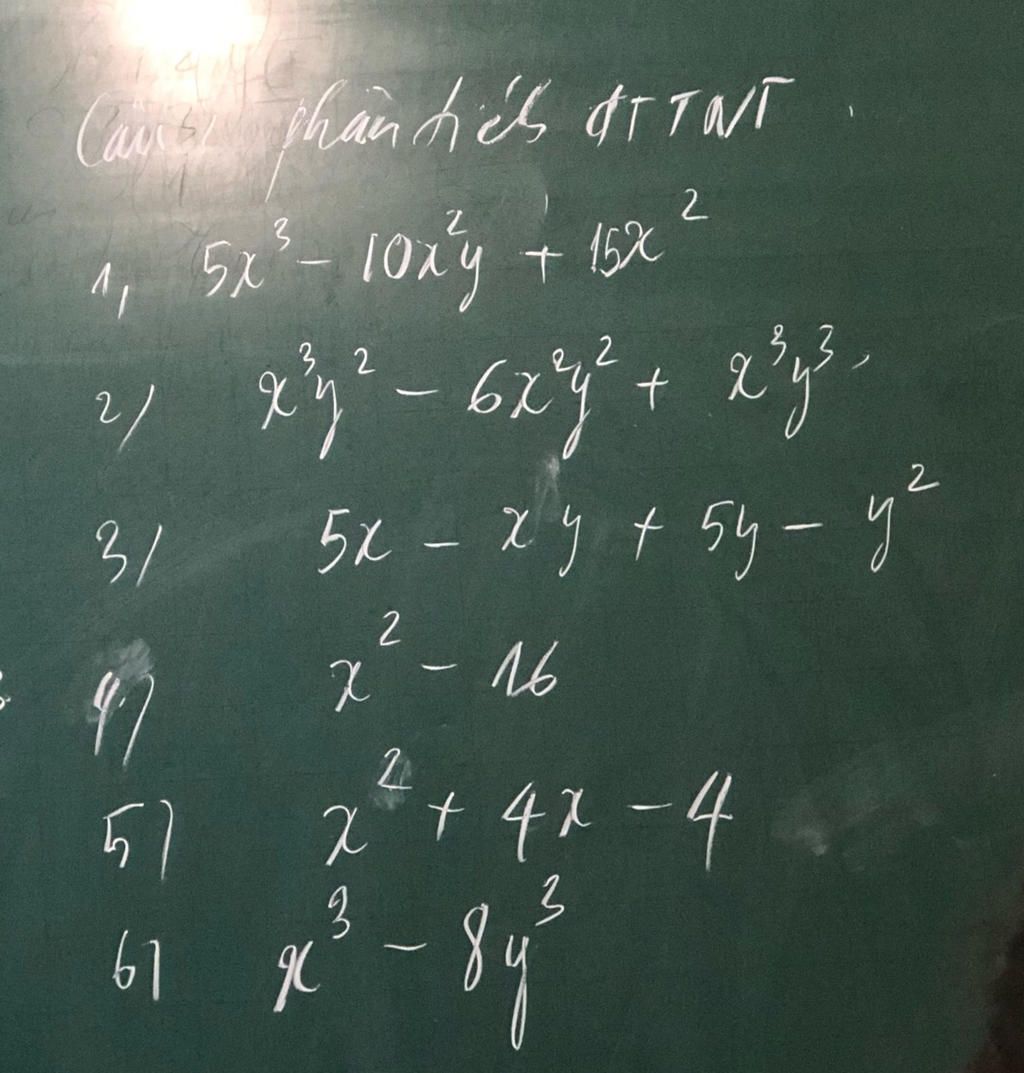 Câu phân tích đTTNT
1, 5x³ − 10x²y + 15x²
2) x³y² − 6x²y² + x³y³
3) 5x − xy + 5y − y²
4) x² − 16
5) x² + 4x − 4
6) x³ − 8y³